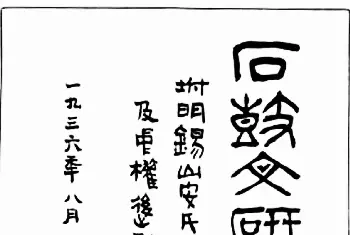 石鼓文研
坿明錫山安氏
及甲權後
一九三六年八月